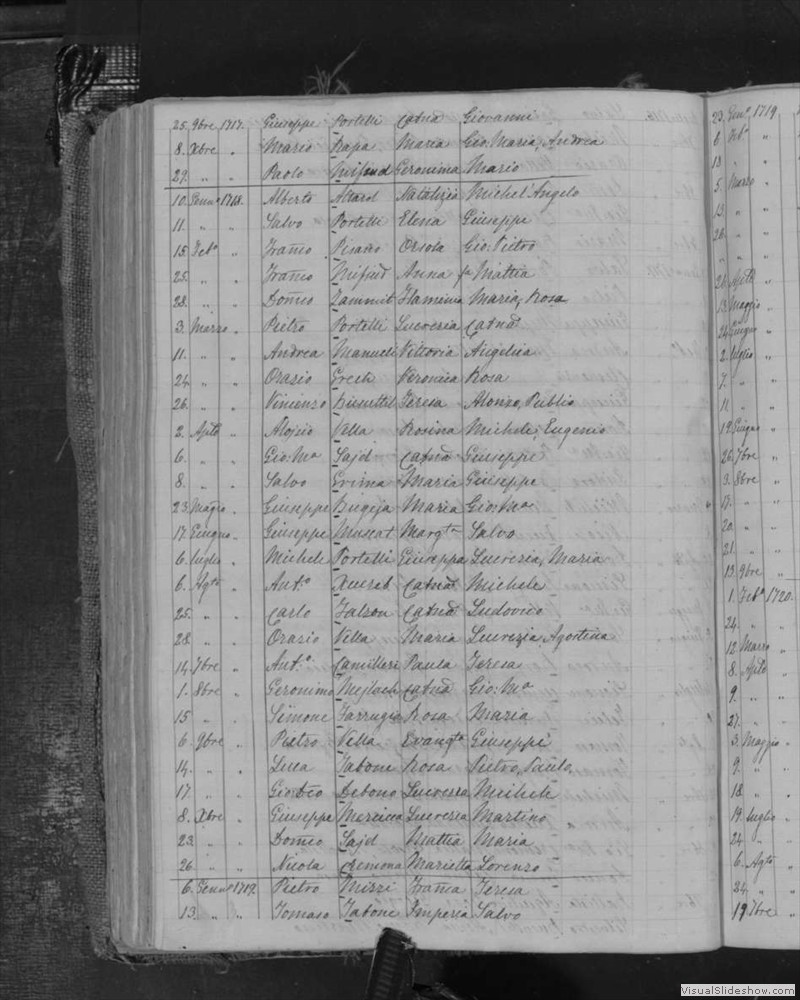 25. 9bre 1717. Giuseppe Portelli Catna Giovanni
8. Xbre „ Mario Rapa Maria Gio: Maria, Andrea
29. „ „ Paolo Mifsud Geronima Mario
10. Genn° 1718. Alberto Attard Natalizia Michel'Angelo
11. „ „ Salvo Portelli Elena Giuseppe
15. Feb° „ Franco Pisano Orsola Gio: Pietro
25. „ „ Franco Mifsud Anna Mattia
28. „ „ Domco Zammit Flaminia Maria, Rosa
3. Marzo „ Pietro Portelli Lucrezia Catna
11. „ „ Andrea Manueli Vittoria Angelica
24. „ „ Orazio Grech Veronica Rosa
26. „ „ Vincenzo Teresa Alonzo, Publio
2. Aple „ Aloisio Vella Rosina Michele, Eugenio
6. „ „ Gio: Ma Sajd Catna Giuseppe
8. „ „ Salvo Grima Maria Giuseppe
23. Magio „ Giuseppe Bugeja Maria Gio: Ma
17. Giugno „ Giuseppe Muscat Margta Salvo
6. luglio „ Michele Portelli Giuseppa Lucrezia, Maria
6. Agto „ Ant° Xuereb Catna Michele
25. „ „ Carlo Falzon Catna Ludovico
28. „ „ Orazio Vella Maria Lucrezia, Agostina
14. 7bre „ Ant° Camilleri Paula Teresa
1. 8bre „ Geronimo Mejlach Catna Gio: Ma
15 „ „ Simone Farrugia Rosa Maria
6. 9bre „ Pietro Vella Evangta Giuseppe
14. „ „ Luca Tabone Rosa Pietro, Paulo,
17. „ „ Gio: Debono Lucrezia Michele
8. Xbre „ Giuseppe Mercieca Lucrezia Martino
23. „ „ Domco Sajd Mattia Maria
26. „ „ Nicola Cremona Marietta Lorenzo
6. Genn° 1719. Pietro Mizzi Franca Teresa
13. „ „ Tomaso Tabone Imperia Salvo
23. Gen° 1719
6. Feb° „
13 „ „
5. Marzo „
13. „ „
20. „ „
„ „
26. Aple „
13. Maggio „
24. Giugno „
2. luglio „
7. „ „
11. „ „
19. Giugno „
26. 7bre „
3. 8bre „
15. „ „
20. „ „
21. „ „
13. 9bre „
1. Feb° 1720.
24. „ „
12. Marzo „
8. Aple „
9. „ „
27. „ „
3. Maggio „
9. „ „
18. „ „
19. luglio „
24. „ „
6. Agto „
24. „ „
19. 7bre „
VisualSlideshow.com